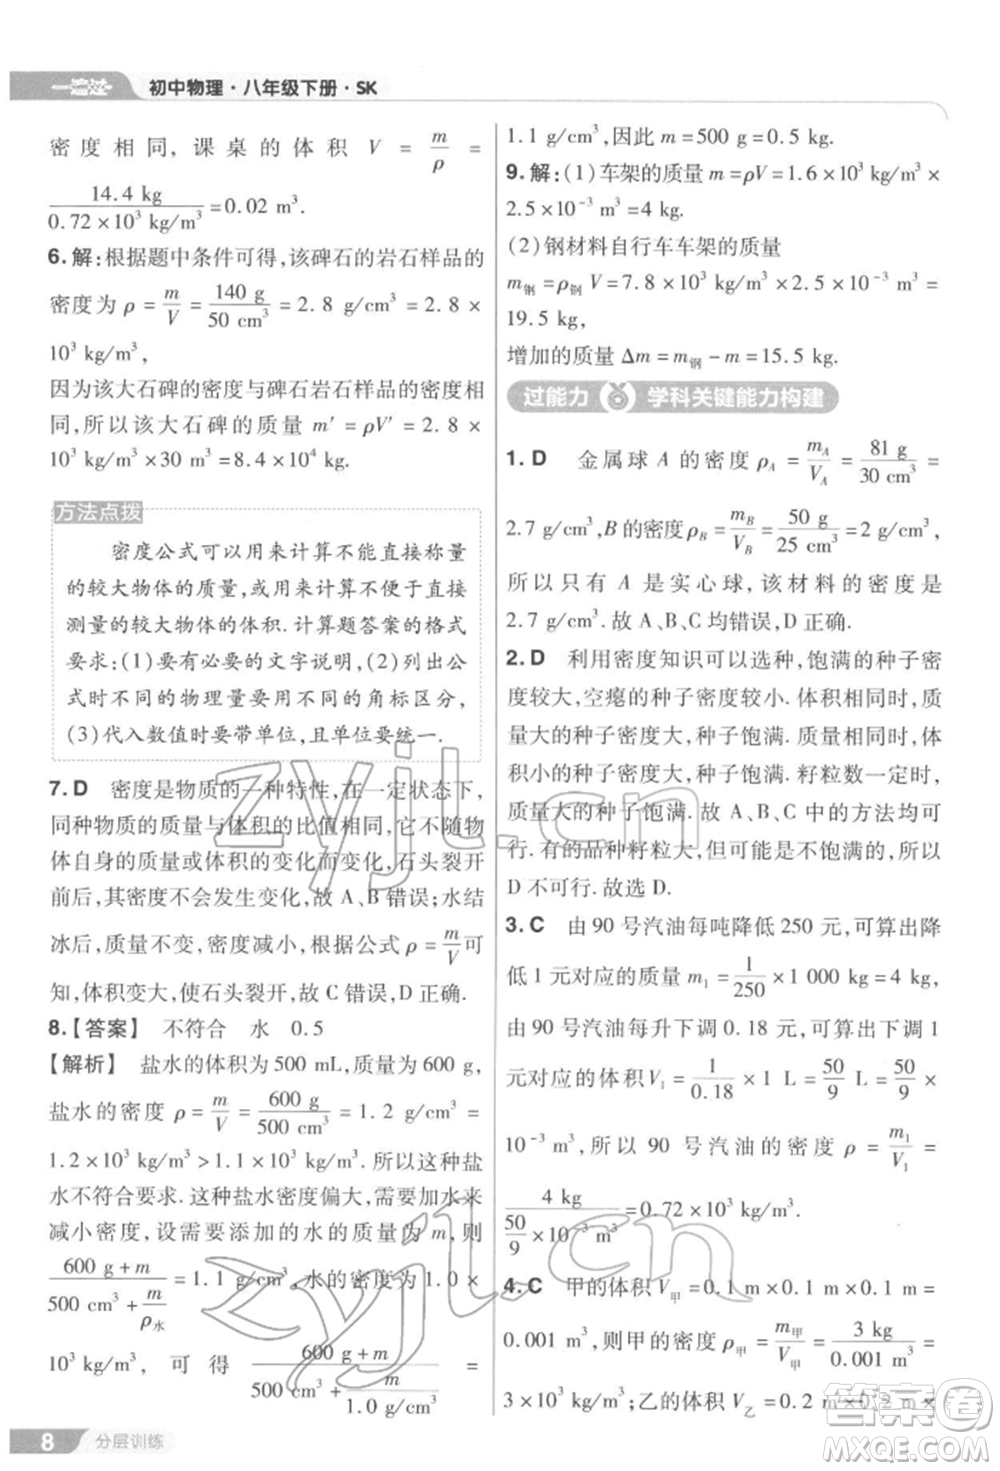 一遍过 初中物理·八年级下册·SK
密度相同,课桌的体积 V = m/ρ =
14.4 kg/(0.72×10³ kg/m³) = 0.02 m³.
6.解:根据题中条件可得,该碑石的岩石样品的
密度为 ρ = m/V = 140 g/50 cm³ = 2.8 g/cm³ = 2.8 ×
10³ kg/m³,
因为该大石碑的密度与碑石岩石样品的密度相同,
所以该大石碑的质量 m′ = ρV′ = 2.8 ×
10³ kg/m³×30 m³=8.4×10⁴ kg.
方法点拨
密度公式可以用来计算不能直接称量
的较大物体的质量,或用来计算不便于直接
测量的较大物体的体积.计算题答案的格式
要求:(1)要有必要的文字说明,(2)列出公
式时不同的物理量要用不同的角标区分,
(3)代入数值时要带单位,单位要统一.
7.D 密度是物质的一种特性,在一定状态下,
同种物质的质量与体积的比值相同,它不随物
体自身的质量或体积的变化而变化,石头裂开
前后,密度不会发生变化,故 A、B 错误;水结
冰后,质量不变,密度减小,根据公式 ρ = m/V 可
知,体积变大,使石头裂开,故 C 错误,D 正确.
8.【答案】 不符合 水 0.5
【解析】 盐水的体积为 500 mL,质量为 600 g,
盐水的密度 ρ = m/V = 600 g/500 cm³ = 1.2 g/cm³ =
1.2×10³ kg/m³>1.1×10³ kg/m³.所以这种盐
水不符合要求.这种盐水密度偏大,需要加水来
减小密度,设需要添加的水的质量为 m,则
(600 g+m)/(500 cm³+m/ρ水) = 1.1 g/cm³,水的密度为 1.0 ×
10³ kg/m³,可得 (600 g+m)/(500 cm³+m/(1.0 g/cm³)) =
8 分层训练
1.1 g/cm³,因此 m=500 g=0.5 kg.
9.解:(1)车架的质量 m=ρV=1.6×10³ kg/m³×
2.5×10⁻³ m³=4 kg.
(2)钢材料自行车车架的质量
m钢=ρ钢V=7.8×10³ kg/m³×2.5×10⁻³ m³=
19.5 kg,
增加的质量 Δm=m钢−m=15.5 kg.
过能力 学科关键能力构建
1.D 金属球 A 的密度 ρA = mA/VA = 81 g/30 cm³ =
2.7 g/cm³,B 的密度 ρB = mB/VB = 50 g/25 cm³ = 2 g/cm³,
所以 A 是实心球,该材料的密度是
2.7 g/cm³.故 A、B、C 均错误,D 正确.
2.D 利用密度知识可以选种,饱满的种子密
度较大,空瘪的种子密度较小.体积相同时,质
量大的种子密度大,种子饱满.质量相同时,体
积小的种子密度大,种子饱满.籽粒数一定时,
质量大的种子饱满.故 A、B、C 中的方法均可
行.有的品种籽粒大,但可能种子不饱满,所以
D 不可行.故选 D.
3.C 由 90 号汽油每吨降低 250 元,可算出降
低 1 元对应的质量 m₁ = 1/250 ×1 000 kg=4 kg,
由 90 号汽油每升下调 0.18 元,可算出下调 1
元对应的体积 V₁ = 1/0.18 ×1 L = 50/9 L = 50/9 ×
10⁻³ m³,所以 90 号汽油的密度 ρ = m₁/V₁ =
4 kg/(50/9×10⁻³ m³) = 0.72×10³ kg/m³.
4.C 甲的体积 V甲=0.1 m×0.1 m×0.1 m=
0.001 m³,则甲的密度 ρ甲 = m甲/V甲 = 3 kg/0.001 m³ =
3×10³ kg/m³;乙的体积 V乙=0.2 m×0.2 m×
zyjl.cn
zyjl.cn
答案卷
MXQE.COM